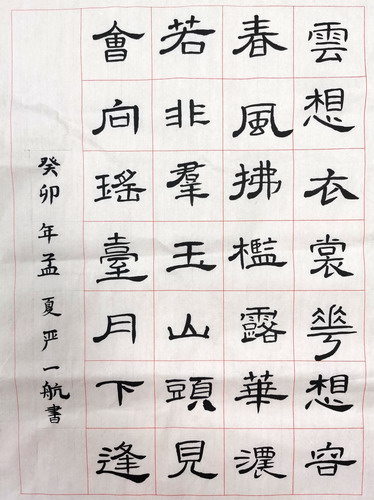 雲想衣裳花想容
春風拂檻露華濃
若非羣玉山頭見
會向瑤臺月下逢
癸卯年孟夏严一航書